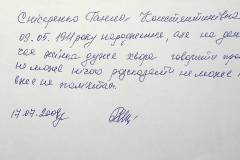 Снісаренко Ганна Константинівна
09.05.1911 року народження, але на да
час жінка дуже хвора говорити
не може нічого розказати не може і
вже не пам'ятає.
17.07.2008р.